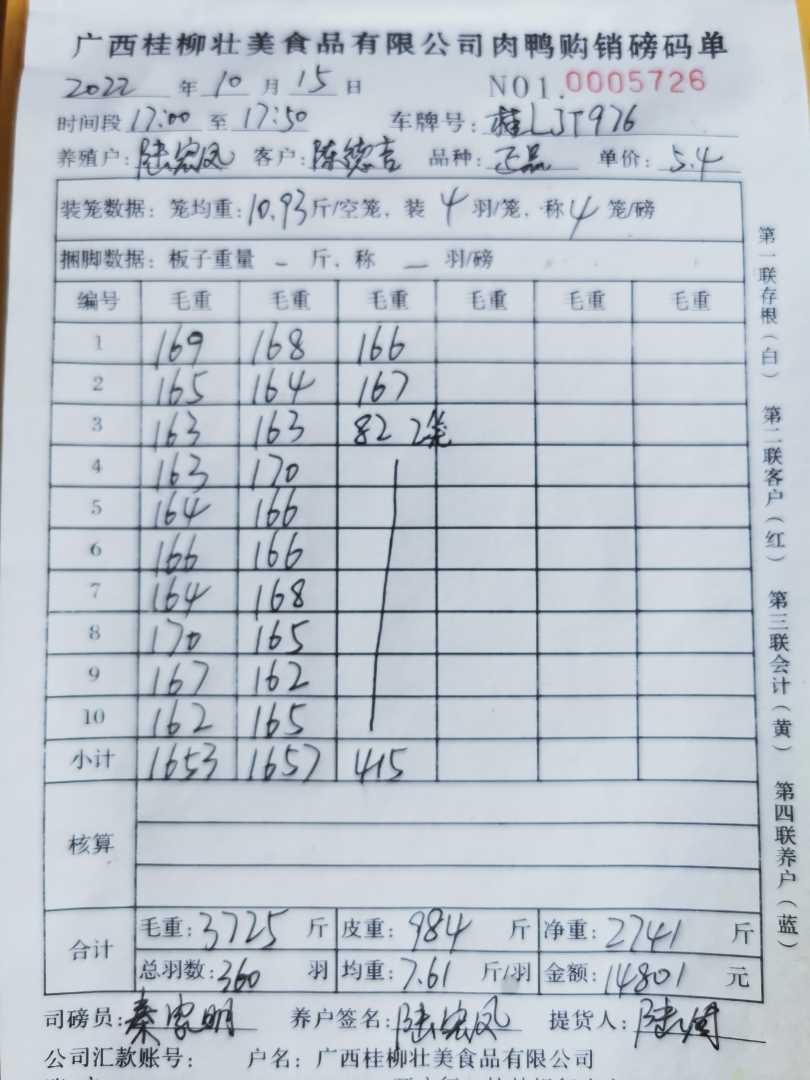 广西桂柳壮美食品有限公司肉鸭购销磅码单
2022 年 10 月 15 日 NO1. 0005726
时间段 17:00 至 17:50 车牌号: 桂LJT976
养殖户: 陆宏凤 客户: 陈德吉 品种: 正品 单价: 5.4
装笼数据: 笼均重: 10.93 斤/空笼, 装 4 羽/笼, 称 4 笼/磅
捆脚数据: 板子重量 - 斤, 称 - 羽/磅
编号 毛重 毛重 毛重 毛重 毛重 毛重
1 169 168 166
2 165 164 167
3 163 163 82 2笼
4 163 170
5 164 166
6 166 166
7 164 168
8 170 165
9 167 162
10 162 165
小计 1653 1657 415
核算
合计
毛重: 3725 斤 皮重: 984 斤 净重: 2741 斤
总羽数: 360 羽 均重: 7.61 斤/羽 金额: 14801 元
司磅员: 秦 明 养户签名: 陆宏凤 提货人: 陆
公司汇款账号: 户名: 广西桂柳壮美食品有限公司
第一联存根(白) 第二联客户(红) 第三联会计(黄) 第四联养户(蓝)